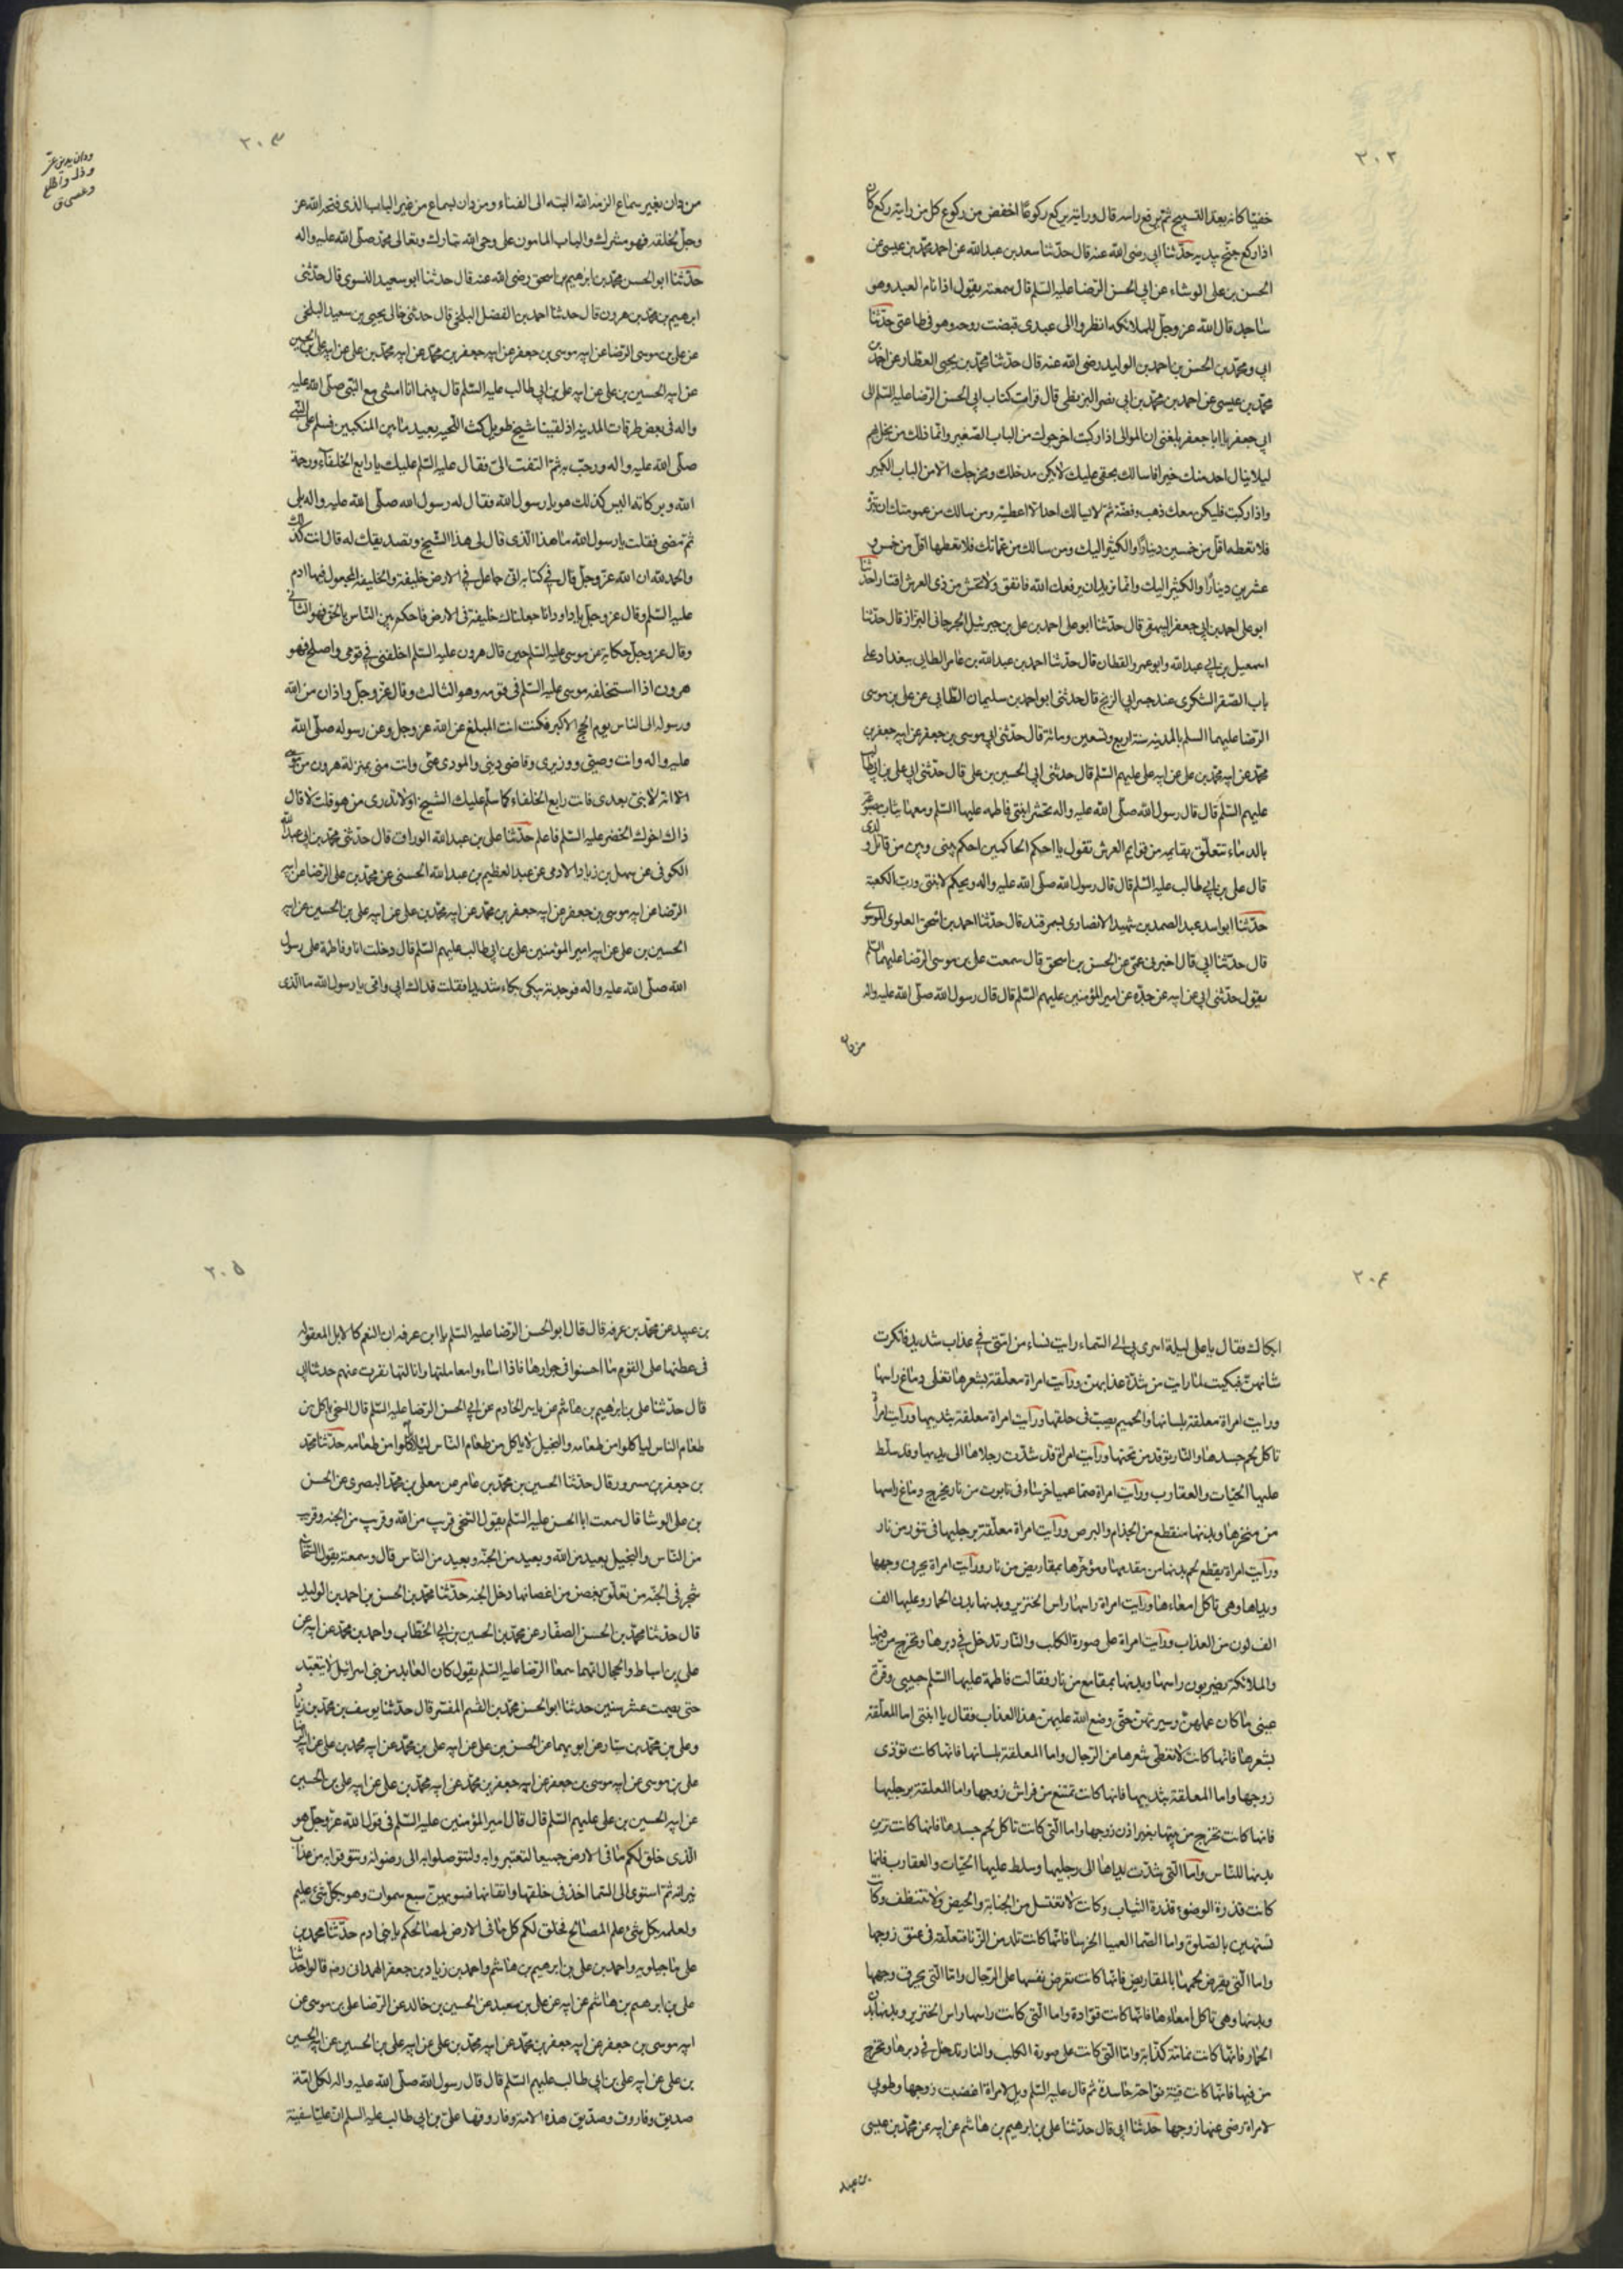 ٢٠٢
خفيا كانه بعد التسبيح ثم يرفع راسه قال ورايته يركع ركوعا اخفض من ركوع كل من رايته ركع كان
اذا ركع جنح بيديه حدثنا ابي رضى الله عنه قال حدثنا سعد بن عبدالله عن احمد محمد بن عيسى عن
الحسن بن على الوشاء عن ابى الحسن الرضا عليه السلم قال سمعته يقول اذا نام العبد وهو
ساجد قال الله عز وجل للملائكه انظروا الى عبدى قبضت روحه وهو فى طاعتى حدثنا
ابي ومحمد بن الحسن بن احمد بن الوليد رضى الله عنه قال حدثنا محمد بن يحيى العطار عن احمد بن
محمد بن عيسى عن احمد بن محمد بن ابى نصر البزنطى قال قرات كتاب ابى الحسن الرضا عليه السلم الى
ابى جعفر يا ابا جعفر بلغنى ان الموالى اذا ركبت اخرجوك من الباب الصغير وانما ذلك من بخل لهم
ليلا ينال احد منك خيرا فاسالك بحقى عليك لا يكن مدخلك ومخرجك الا من الباب الكبير
واذا ركبت فليكن معك ذهب وفضة ثم لا يسالك احد الا اعطيته ومن سالك من عمومتك ان تبره
فلا تعطه اقل من خمسين دينارا والكثير اليك ومن سالك من عماتك فلا تعطها اقل من خمس و
عشرين دينارا والكثير اليك وانما اريد ان يرفعك الله فانفق ولا تخش من ذى العرش اقتارا حدثنا
ابو على احمد بن ابى جعفر البيهقى قال حدثنا ابو على احمد بن على بن جبرئيل الجرجانى البزاز قال حدثنا
اسمعيل بن ابى عبدالله وابو عمرو القطان قال حدثنا احمد بن عبدالله بن عامر الطايى ببغداد على
باب الصقر السكرى عند جسر ابى الزنج قال حدثنى ابو احمد بن سليمان الطايى عن على بن موسى
الرضا عليهما السلم بالمدينه سنة اربع وتسعين ومائة قال حدثنى ابى موسى بن جعفر عن ابيه جعفر بن
محمد عن ابيه محمد بن على عن ابيه على عليهم السلم قال حدثنى ابى الحسين بن على قال حدثنى ابى على بن ابى طالب
عليهم السلم قال قال رسول الله صلى الله عليه واله تحشر ابنتى فاطمه عليها السلم ومعها ثياب مصبوغة
بالدماء تتعلق بقايمه من قوايم العرش تقول يا احكم الحاكمين احكم بينى وبين من قاتل ولدى
قال على بن ابى طالب عليه السلم قال قال رسول الله صلى الله عليه واله ويحكم لابنتى ورب الكعبة
حدثنا ابو اسد عبد الصمد بن شهيد الانصارى بسمرقند قال حدثنا احمد بن اسحق العلوى الموسوى
قال حدثنا ابى قال اخبرنى عمى عن الحسن بن اسحق قال سمعت على بن موسى الرضا عليهما السلم
يقول حدثنى ابى عن ابيه عن جده عن امير المؤمنين عليهم السلم قال قال رسول الله صلى الله عليه واله
من دان
٢٠٣
من دان بغير سماع الزمه الله البته الى الفناء ومن دان بسماع من غير الباب الذى فتحه الله عز
وجل لخلقه فهو مشرك والباب المامون على وحى الله تبارك وتعالى محمد صلى الله عليه واله
حدثنا ابو الحسن محمد بن ابرهيم بن اسحق رضى الله عنه قال حدثنا ابو سعيد النسوى قال حدثنى
ابرهيم بن محمد بن هرون قال حدثنا احمد بن الفضل البلخى قال حدثنى خالى يحيى بن سعيد البلخى
عن على بن موسى الرضا عن ابيه موسى بن جعفر عن ابيه جعفر بن محمد عن ابيه محمد بن على عن ابيه على بن الحسين
عن ابيه الحسين بن على عن ابيه على بن ابى طالب عليه السلم قال بينما انا امشى مع النبى صلى الله عليه
واله فى بعض طرقات المدينه اذ لقينا شيخ طويل كث اللحيه بعيد ما بين المنكبين فسلم على النبى
صلى الله عليه واله ورحب به ثم التفت الى فقال عليه السلم عليك يا رابع الخلفاء ورحمة
الله وبركاته اليس كذلك هو يا رسول الله فقال له رسول الله صلى الله عليه واله بلى
ثم مضى فقلت يا رسول الله ما هذا الذى قال لى هذا الشيخ وتصديقك له قال انت كذلك
والحمد لله ان الله عز وجل قال فى كتابه انى جاعل فى الارض خليفة والخليفه المجعول فيها ادم
عليه السلم وقال عز وجل يا داود انا جعلناك خليفة فى الارض فاحكم بين الناس بالحق فهو الثانى
وقال عز وجل حكاية عن موسى عليه السلم حين قال هرون عليه السلم اخلفنى فى قومى واصلح فهو
هرون اذا استخلفه موسى عليه السلم فى قومه وهو الثالث وقال عز وجل واذان من الله
ورسوله الى الناس يوم الحج الاكبر فكنت انت المبلغ عن الله عز وجل وعن رسوله صلى الله
عليه واله وانت وصيى ووزيرى وقاضى دينى والمودى عنى وانت منى بمنزلة هرون من موسى
الا انه لا نبى بعدى فانت رابع الخلفاء كما سلم عليك الشيخ او لا تدرى من هو قلت لا قال
ذاك اخوك الخضر عليه السلم فاعلم حدثنا على بن عبدالله الوراق قال حدثنى محمد بن ابى عبدالله
الكوفى عن سهل بن زياد الادمى عن عبد العظيم بن عبدالله الحسنى عن محمد بن على الرضا عن ابيه
الرضا عن ابيه موسى بن جعفر عن ابيه جعفر بن محمد عن ابيه محمد بن على عن ابيه على بن الحسين عن ابيه
الحسين بن على عن ابيه امير المؤمنين على بن ابى طالب عليهم السلم قال دخلت انا وفاطمة على رسول
الله صلى الله عليه واله فوجدته يبكى بكاء شديدا فقلت فداك ابى وامى يا رسول الله ما الذى
٢٠۴
ابكاك فقال يا على ليلة اسرى بى الى السماء رايت نساء من امتى فى عذاب شديد فانكرت
شانهن فبكيت لما رايت من شدة عذابهن ورايت امراة معلقة بشعرها تغلى دماغ راسها
ورايت امراة معلقة بلسانها والحميم يصب فى حلقها ورايت امراة معلقة بثدييها ورايت امراة
تاكل لحم جسدها والنار توقد من تحتها ورايت امراة قد شدت رجلاها الى يديها وقد سلط
عليها الحيات والعقارب ورايت امراة صما عميا خرساء فى تابوت من نار يخرج دماغ راسها
من منخرها وبدنها متقطع من الجذام والبرص ورايت امراة معلقة برجليها فى تنور من نار
ورايت امراة يقطع لحم بدنها من مقدمها ومؤخرها بمقاريض من نار ورايت امراة يحرق وجهها
ويداها وهى تاكل امعاءها ورايت امراة راسها راس الخنزير وبدنها بدن الحمار وعليها الف
الف لون من العذاب ورايت امراة على صورة الكلب والنار تدخل فى دبرها وتخرج من فيها
والملائكة يضربون راسها وبدنها بمقامع من نار فقالت فاطمة عليها السلم حبيبى وقرة
عينى ما كان عملهن وسيرتهن حتى وضع الله عليهن هذا العذاب فقال يا ابنتى اما المعلقة
بشعرها فانها كانت لا تغطى شعرها من الرجال واما المعلقة بلسانها فانها كانت توذى
زوجها واما المعلقة بثدييها فانها كانت تمتنع من فراش زوجها واما المعلقة برجليها
فانها كانت تخرج من بيتها بغير اذن زوجها واما التى كانت تاكل لحم جسدها فانها كانت تزين
بدنها للناس واما التى شدت يداها الى رجليها وسلط عليها الحيات والعقارب فانها
كانت قذرة الوضوء قذرة الثياب وكانت لا تغتسل من الجنابة والحيض ولا تتنظف وكانت
تستهين بالصلوة واما الصما العميا الخرسا فانها كانت تلد من الزنا فتعلقه فى عنق زوجها
واما التى يقرض لحمها بالمقاريض فانها كانت تعرض نفسها على الرجال واما التى يحرق وجهها
وبدنها وهى تاكل امعاءها فانها كانت قوادة واما التى كانت راسها راس الخنزير وبدنها بدن
الحمار فانها كانت نمامة كذابة واما التى كانت على صورة الكلب والنار تدخل فى دبرها وتخرج
من فيها فانها كانت قينة نواحة حاسدة ثم قال عليه السلم ويل لامراة اغضبت زوجها وطوبى
لامراة رضى عنها زوجها حدثنا ابى قال حدثنا على بن ابرهيم بن هاشم عن ابيه عن محمد بن عيسى
بن عبيد
٢٠۵
بن عبيد عن محمد بن عرفه قال قال ابو الحسن الرضا عليه السلم يا ابن عرفه ان النعم كالابل المعقوله
فى عطنها على القوم ما احسنوا فى جوارها فاذا اساءوا معاملتها وانالتها نفرت عنهم حدثنا ابى
قال حدثنا على بن ابراهيم بن هاشم عن ياسر الخادم عن ابى الحسن الرضا عليه السلم قال السخى ياكل من
طعام الناس لياكلوا من طعامه والبخيل لا ياكل من طعام الناس ليلا ياكلوا من طعامه حدثنا محمد
بن جعفر بن مسرور قال حدثنا الحسين بن محمد بن عامر عن معلى بن محمد البصرى عن الحسن
بن على الوشا قال سمعت ابا الحسن عليه السلم يقول السخى قريب من الله وقريب من الجنه وقريب
من الناس والبخيل بعيد من الله وبعيد من الجنه وبعيد من الناس قال وسمعته يقول السخاء
شجرة فى الجنه من تعلق بغصن من اغصانها دخل الجنه حدثنا محمد بن الحسن بن احمد بن الوليد
قال حدثنا محمد بن الحسن الصفار عن محمد بن الحسين بن ابى الخطاب واحمد بن محمد عن ابيه عن
على بن اسباط والحجال انهما سمعا الرضا عليه السلم يقول كان العابد من بنى اسرائيل لا يتعبد
حتى يصمت عشر سنين حدثنا ابو الحسن محمد بن القسم المفسر قال حدثنا يوسف بن محمد بن زياد
وعلى بن محمد بن سيار عن ابويهما عن الحسن بن على عن ابيه على بن محمد عن ابيه محمد بن على عن ابيه الرضا
على بن موسى عن ابيه موسى بن جعفر عن ابيه جعفر بن محمد عن ابيه محمد بن على عن ابيه على بن الحسين
عن ابيه الحسين بن على عليهم السلم قال قال امير المؤمنين عليه السلم فى قول الله عز وجل هو
الذى خلق لكم ما فى الارض جميعا لتعتبروا به ولتتوصلوا به الى رضوانه وتتوقوا به من عذاب
نيرانه ثم استوى الى السما اخذ فى خلقها واتقانها فسويهن سبع سموات وهو بكل شئ عليم
ولعلمه بكل شئ علم المصالح فخلق لكم كل ما فى الارض لمصالحكم يا بنى ادم حدثنا محمد بن
على ماجيلويه واحمد بن على بن ابرهيم بن هاشم واحمد بن زياد بن جعفر الهمدانى رضه قالوا حدثنا
على بن ابرهيم بن هاشم عن ابيه عن على بن معبد عن الحسين بن خالد عن الرضا على بن موسى عن
ابيه موسى بن جعفر عن ابيه جعفر بن محمد عن ابيه محمد بن على عن ابيه على بن الحسين عن ابيه الحسين
بن على عن ابيه على بن ابى طالب عليهم السلم قال قال رسول الله صلى الله عليه واله لكل امة
صديق وفاروق وصديق هذه الامة وفاروقها على بن ابى طالب عليه السلم ان عليا سفينة